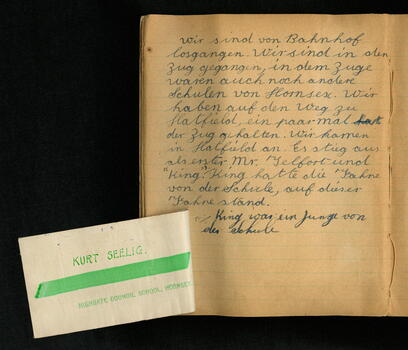 wir sind von Bahnhof
losgangen. Wir sind in den
Zug gegangen, in dem Zuge
waren auch noch andere
Schulen von Hornsex. Wir
haben auf den Weg zu
Hatfield, ein paar mal hat
der Zug gehalten. Wir kamen
in Hatfield an. Es stieg aus
als erster, Mr. Telfort und
"King". King hatte die Fahne
von der Schule, auf dieser
Fahne stand.
King war ein Junge von
der Schule
KURT SEELIG.
HIGHGATE COUNCIL SCHOOL, HORNSEY